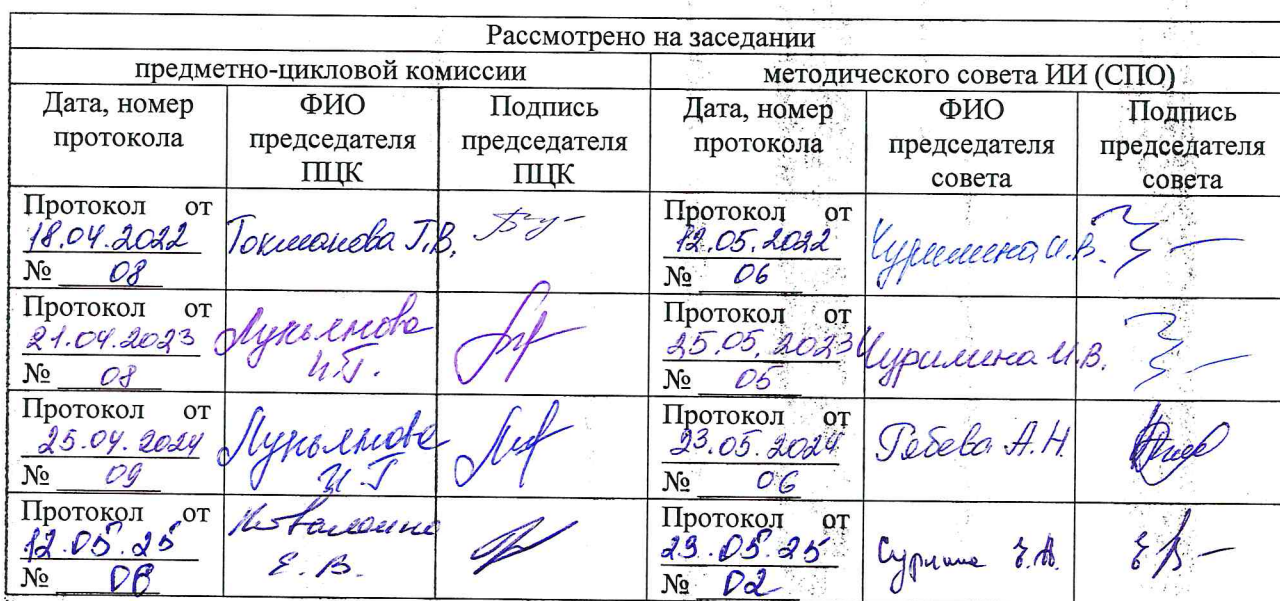 Рассмотрено на заседании
предметно-цикловой комиссии
методического совета ИИ (СПО)
Дата, номер протокола
ФИО председателя ПЦК
Подпись председателя ПЦК
Дата, номер протокола
ФИО председателя совета
Подпись председателя совета
Протокол от
18.04.2022
№ 08
Токманова Т.В.
Протокол от
12.05.2022
№ 06
Чуримина И.В.
Протокол от
21.04.2023
№ 08
Лукьянова
И.Г.
Протокол от
25.05.2023
№ 05
Чуримина И.В.
Протокол от
25.04.2024
№ 09
Лукьянова
И.Г
Протокол от
23.05.2024
№ 06
Гебева А.Н.
Протокол от
12.05.25
№ 08
Е.В.
Протокол от
29.05.25
№ 02